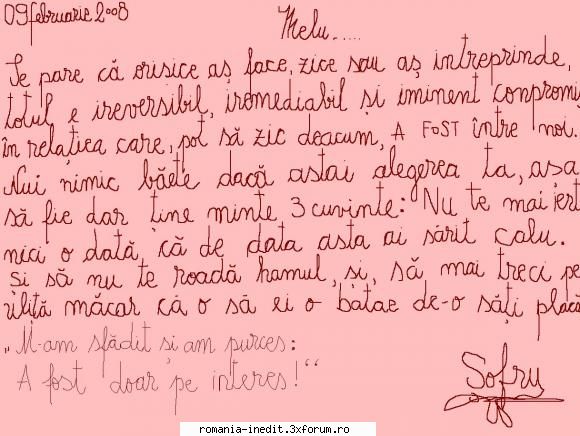 09 februarie 2008
Melu.....
Se pare că orisice aș face, zice sau aș intreprinde,
totul e ireversibil, iremediabil și iminent compromi
în relația care, pot să zic deacum, A FOST între noi.
Nui nimic băete dacă astai alegerea ta, asa
să fie dar tine minte 3 cuvinte: Nu te mai iert
nici o dată, că de data asta ai sărit calu.
și să nu te roadă hamul, și, să mai treci pe
uliță măcar că o să ei o bătae de-o săți placă
„M-am sfădit și am purces:
A fost doar pe interes!“
Sofru
romania-inedit.3xforum.ro